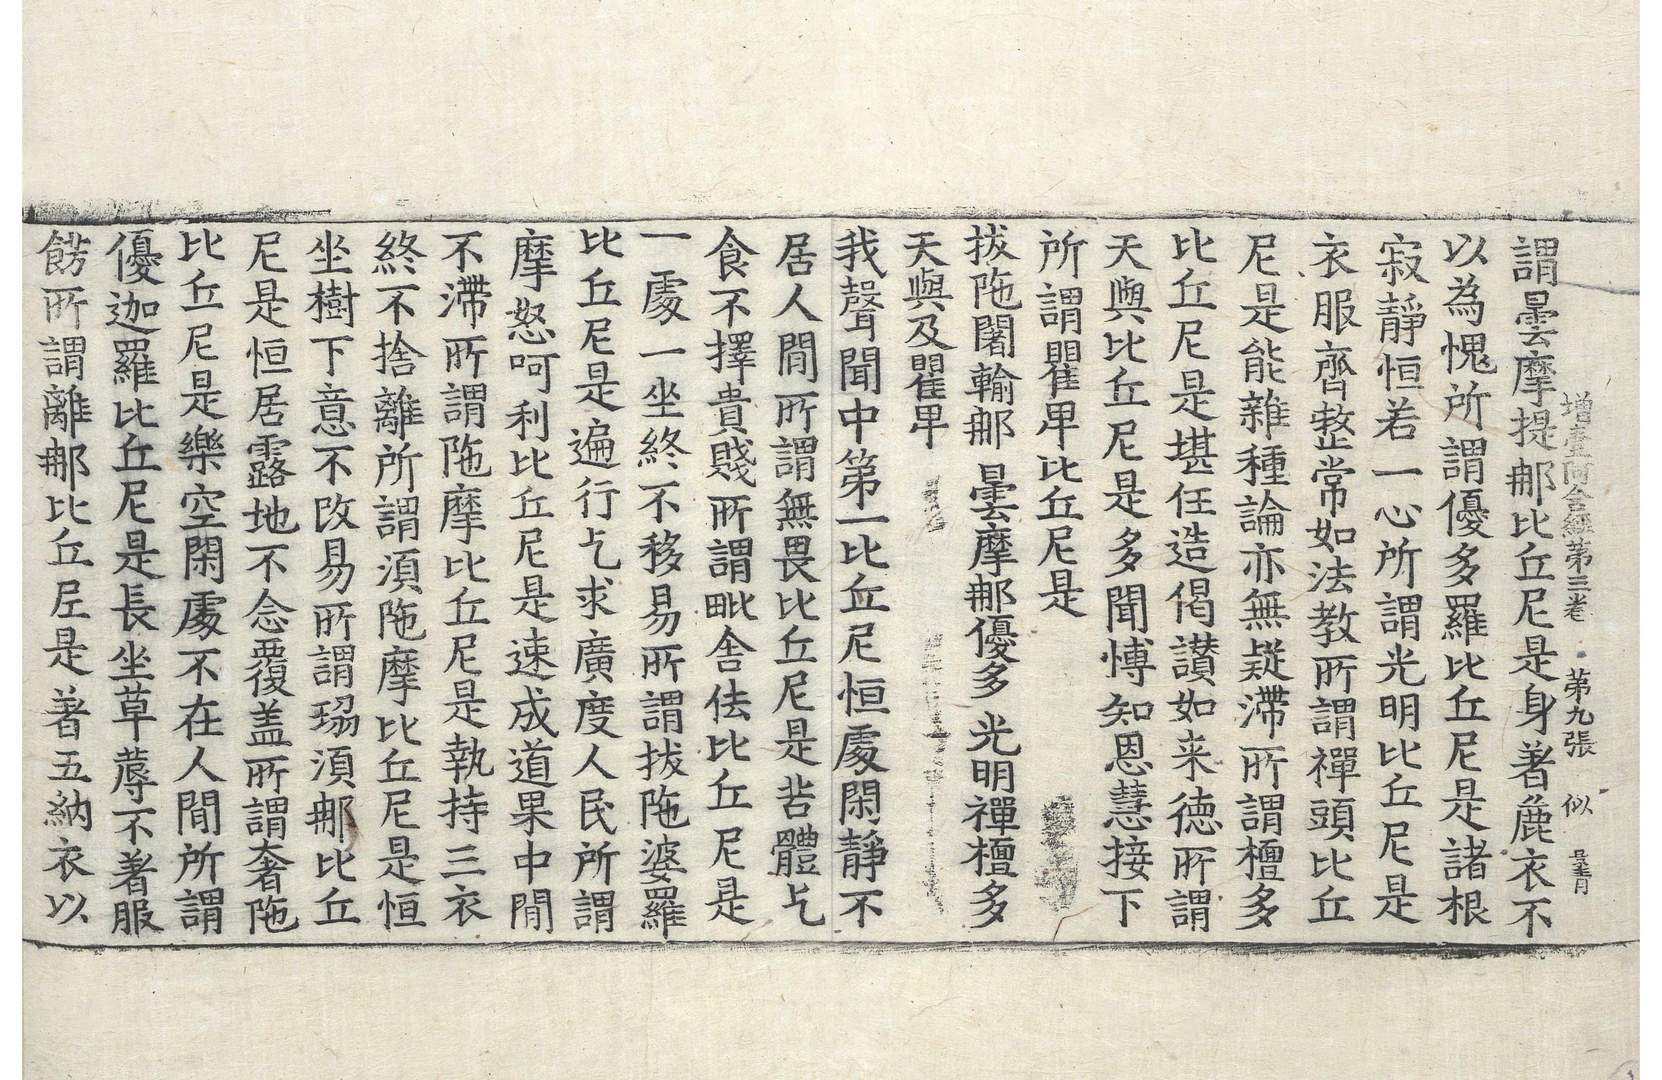 增壹阿含經第三卷　第九張　似
謂曇摩提䣯比丘尼是身著麁衣不
以為愧所謂優多羅比丘尼是諸根
寂靜恒若一心所謂光明比丘尼是
衣服齊整常如法教所謂禪頭比丘
尼是能雜種論亦無疑滯所謂檀多
比丘尼是堪任造偈讃如来德所謂
天與比丘尼是多聞愽知恩慧接下
所謂瞿卑比丘尼是
拔陁闍輸䣯　曇摩䣯優多　光明禪檀多
天與及瞿卑
我聲聞中第一比丘尼恒處閑靜不
居人間所謂無畏比丘尼是苦體乞
食不擇貴賤所謂毗舍佉比丘尼是
一處一坐終不移易所謂拔陁婆羅
比丘尼是遍行乞求廣度人民所謂
摩怒呵利比丘尼是速成道果中間
不滯所謂陁摩比丘尼是執持三衣
終不捨離所謂湏陁摩比丘尼是恒
坐樹下意不改易所謂珕湏䣯比丘
尼是恒居露地不念覆盖所謂奢陁
比丘尼是樂空閑處不在人間所謂
優迦羅比丘尼是長坐草蓐不著服
餝所謂離䣯比丘尼是著五納衣以